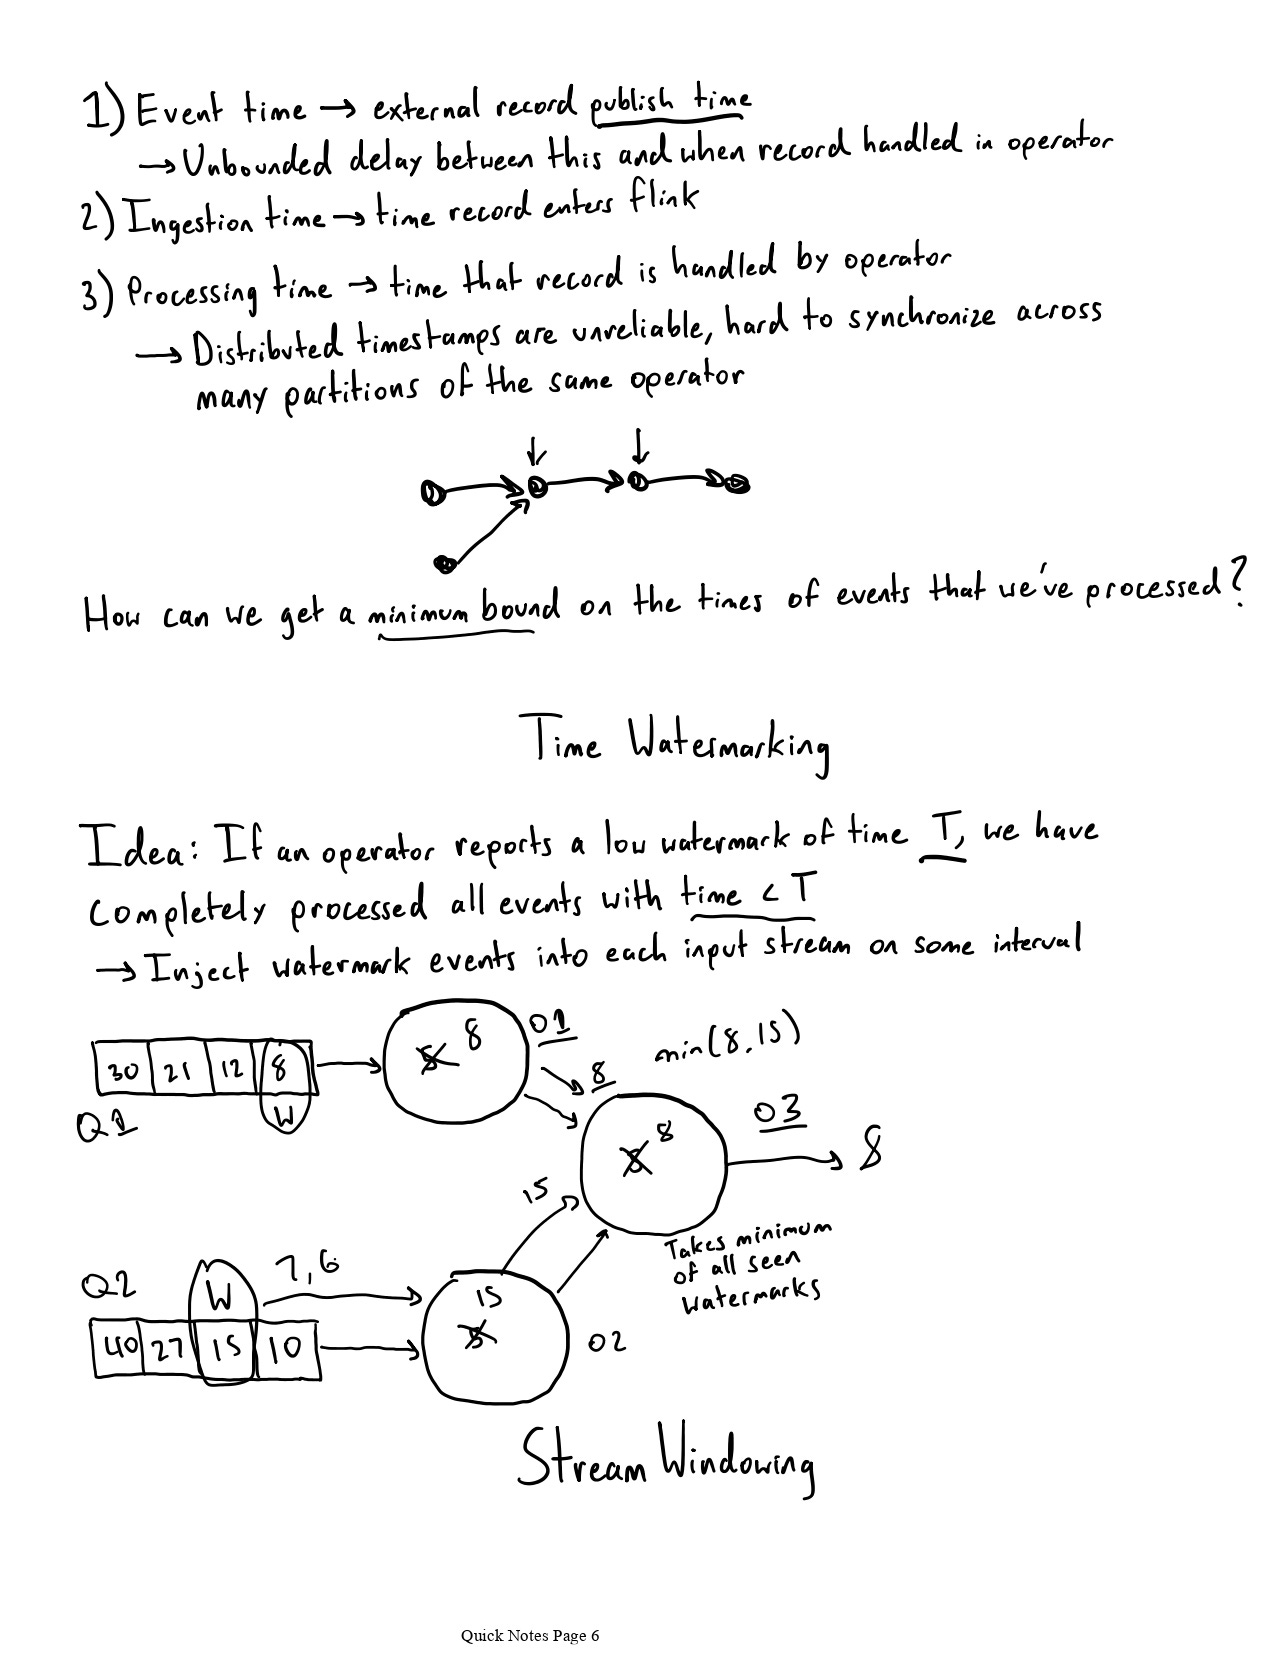 1) Event time → external record publish time
→ Unbounded delay between this and when record handled in operator
2) Ingestion time → time record enters flink
3) Processing time → time that record is handled by operator
→ Distributed timestamps are unreliable, hard to synchronize across
many partitions of the same operator
How can we get a minimum bound on the times of events that we've processed?
Time Watermarking
Idea: If an operator reports a low watermark of time T, we have
completely processed all events with time < T
→ Inject watermark events into each input stream on some interval
30 21 12 8
W
Q1
8
O1
8
min(8,15)
8
O3
8
15
Takes minimum
of all seen
watermarks
Q2
W
7,6
40 27 15 10
15
O2
Stream Windowing
Quick Notes Page 6